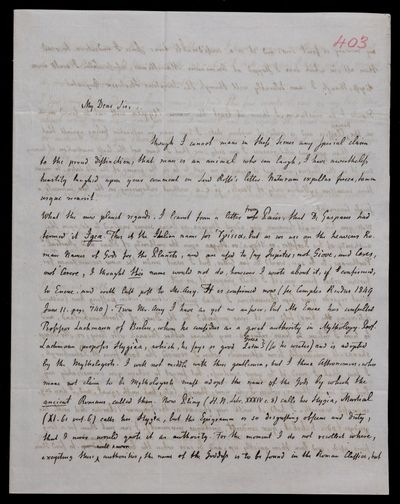 403
My Dear Sir,
Though I cannot make in these scenes any special claim
to the proud distinction, that man is an animal who can laugh, I have nevertheless
heartily laughed upon your comment on Lord Rosse's letter Naturam expellas furca, tamen
usque recurret.
What the new planet regards, I learned from a letter from Paris, that D. Gasparis had
termed it Igea. This is the Italian name for Hygieia, but as we use on the heavens Ro-
man Names of Gods for the Planets, and are used to say Jupiter, not Giove, and Ceres,
not Cerere, I thought this name would not do, however I wrote about it, if confirmed,
to Encke, and with last post to Mr. Airy. It is confirmed now (see Comptes Rendus 1849
June 11. pag. 740). From Mr. Airy I have as yet no answer, but Mr Encke has consulted
Professor Lachmann of Berlin, whom he considers as a good authority in Mythology. Prof.
Lachmann proposes Hygiëa, which, he says, is good Latin (so he writes) and is adopted
by the Mythologists. I will not meddle with these gentlemen, but I think Astronomers, who
make not claim to be Mythologists must adopt the name of the Gods by which the
ancient Romans called them. Now Pliny (H. N. Lib. XXXIV c. 8) calls her Hygia, Martial
(XI. 61 v. 6) calls her Hygia, but the Epigramm is so disgusting obscene and dirty,
that I never would quote it as authority. For the moment I do not recollect where,
excepting these well known authorities, the name of the Goddess is to be found in the Roman Classics, but